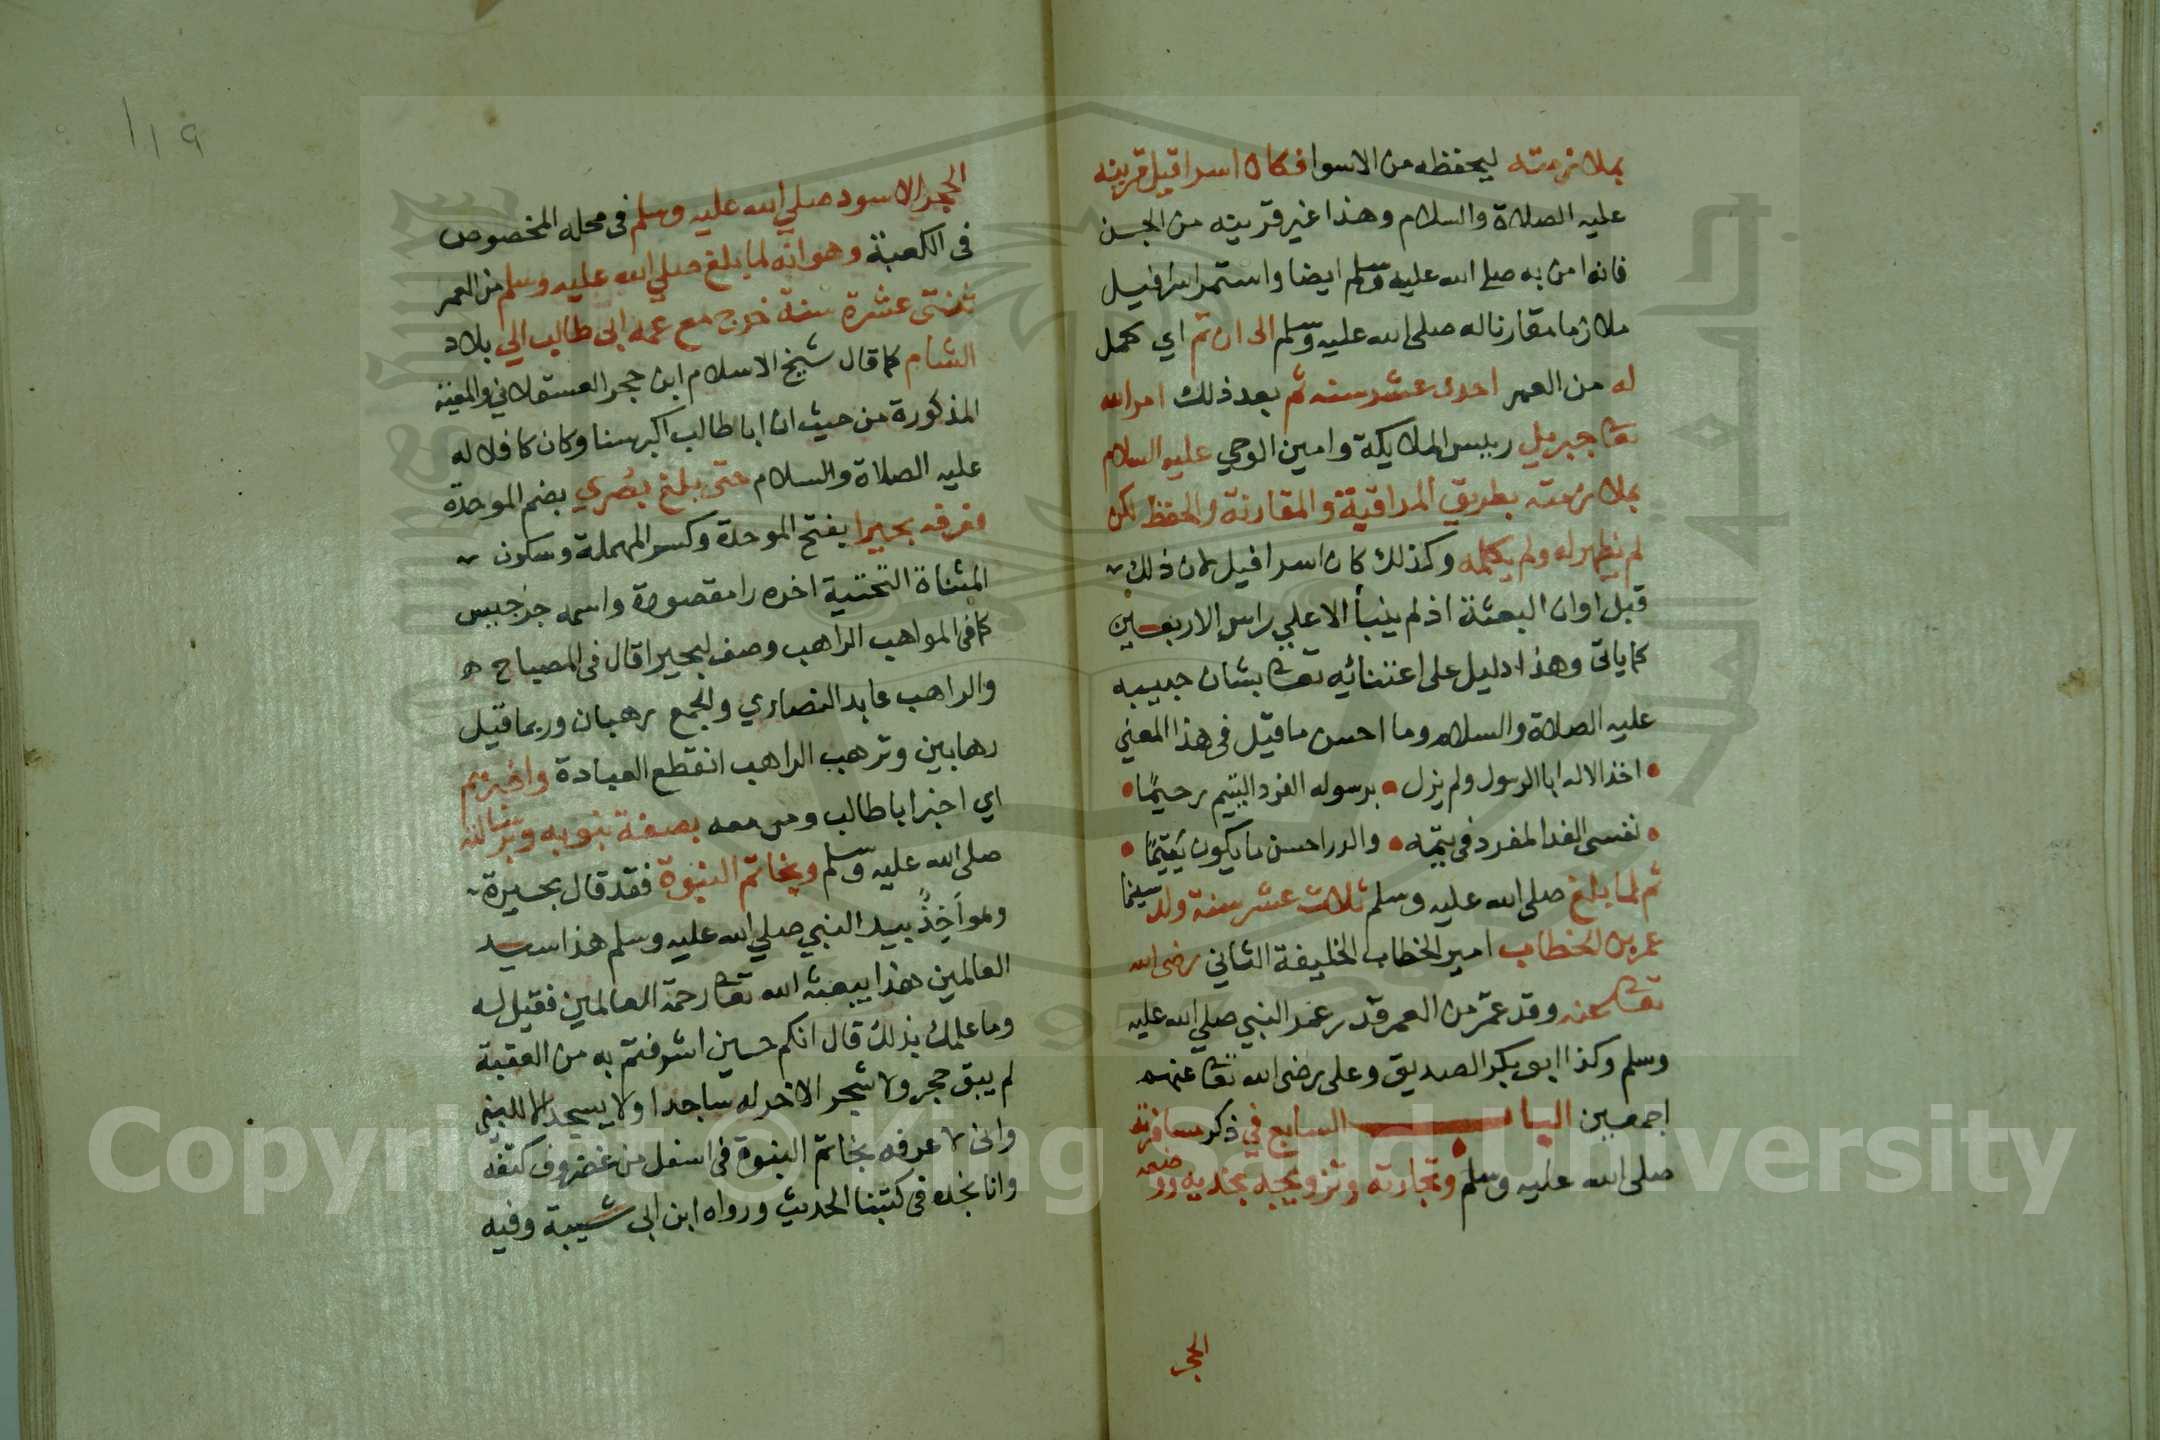 بملازمته ليحفظه من الاسوا فكان اسرافيل قرينه
عليه الصلاة والسلام وهذا غير قرينه من الجن
فانه امن به صلى الله عليه وسلم ايضا واستمر اسرافيل
ملازما مقارنا له صلى الله عليه وسلم الى ان تم اي كمل
له من العمر احدى عشر سنه ثم بعد ذلك امر الله
تعا جبريل رييس الملايكة وامين الوحي عليه السلام
بملازمته بطريق المراقبة والمقارنة والحفظ لكن
لم يظهر له ولم يكلمه وكذلك كان اسرافيل لان ذلك
قبل اوان البعثة اذ لم ينبأ الا علي راس الاربعين
كما ياتي وهذا دليل على اعتنائه تعا بشان حبيبه
عليه الصلاة والسلام وما احسن ما قيل في هذا المعني
اخذ الاله ابا الرسول ولم يزل • برسوله الفرد اليتيم رحيمًا •
نفسى الفدا لمفرد في يتمه • والدر احسن ما يكون يَتيمًا •
ثم لما بلغ صلى الله عليه وسلم ثلاث عشر سنة ولد سيدنا
عمر بن الخطاب امير الخطاب الخليفة الثاني رضى الله
تعا عنه وقد عمّر من العمر قدر عمر النبي صلي الله عليه
وسلم وكذا ابو بكر الصديق وعلى رضى الله تعا عنهم
اجمعين الباب السابع في ذكر مسافرته
صلى الله عليه وسلم وتجارته وتزويجه بخديجه ووضعه
الحجر
١١٩
الحجر الاسود صلي الله عليه وسلم في محله المخصوص
في الكعبة وهو انه لما بلغ صلي الله عليه وسلم من العمر
ثنتى عشرة سنة خرج مع عمه ابى طالب الي بلاد
الشام كما قال شيخ الاسلام ابن حجر العسقلاني والمعية
المذكورة من حيث ان ابا طالب اكبر سنا وكان كافلا له
عليه الصلاة والسلام حتى بلغ بصري بضم الموحدة
فعرفه بحيرا بفتح الموحدة وكسر المهملة وسكون
المثناة التحتية اخره را مقصورة واسمه جرجيس
كما في المواهب الراهب وصف لبحيرا قال في المصباح
والراهب عابد النصاري والجمع رهبان وربما قيل
رهابين وترهب الراهب انقطع العبادة واخبرهم
اي اخبر ابا طالب ومن معه بصفة نبوته وبرسالته
صلى الله عليه وسلم وبخاتم النبوة فقد قال بحيرة
وهو آخِذٌ بيد النبي صلي الله عليه وسلم هذا سيد
العالمين هذا يبعثه الله تعا رحمة للعالمين فقيل له
وما علمك بذلك قال انكم حين اشرفتم به من العقبة
لم يبق حجر ولا شجر الا خر له ساجدا ولا يسجد الا للنبي
واني لاعرفه بخاتم النبوة في اسفل من غضروف كتفه
وانا نجده في كتبنا الحديث ورواه ابن ابي شيبة وفيه
Copyright © King Saud University